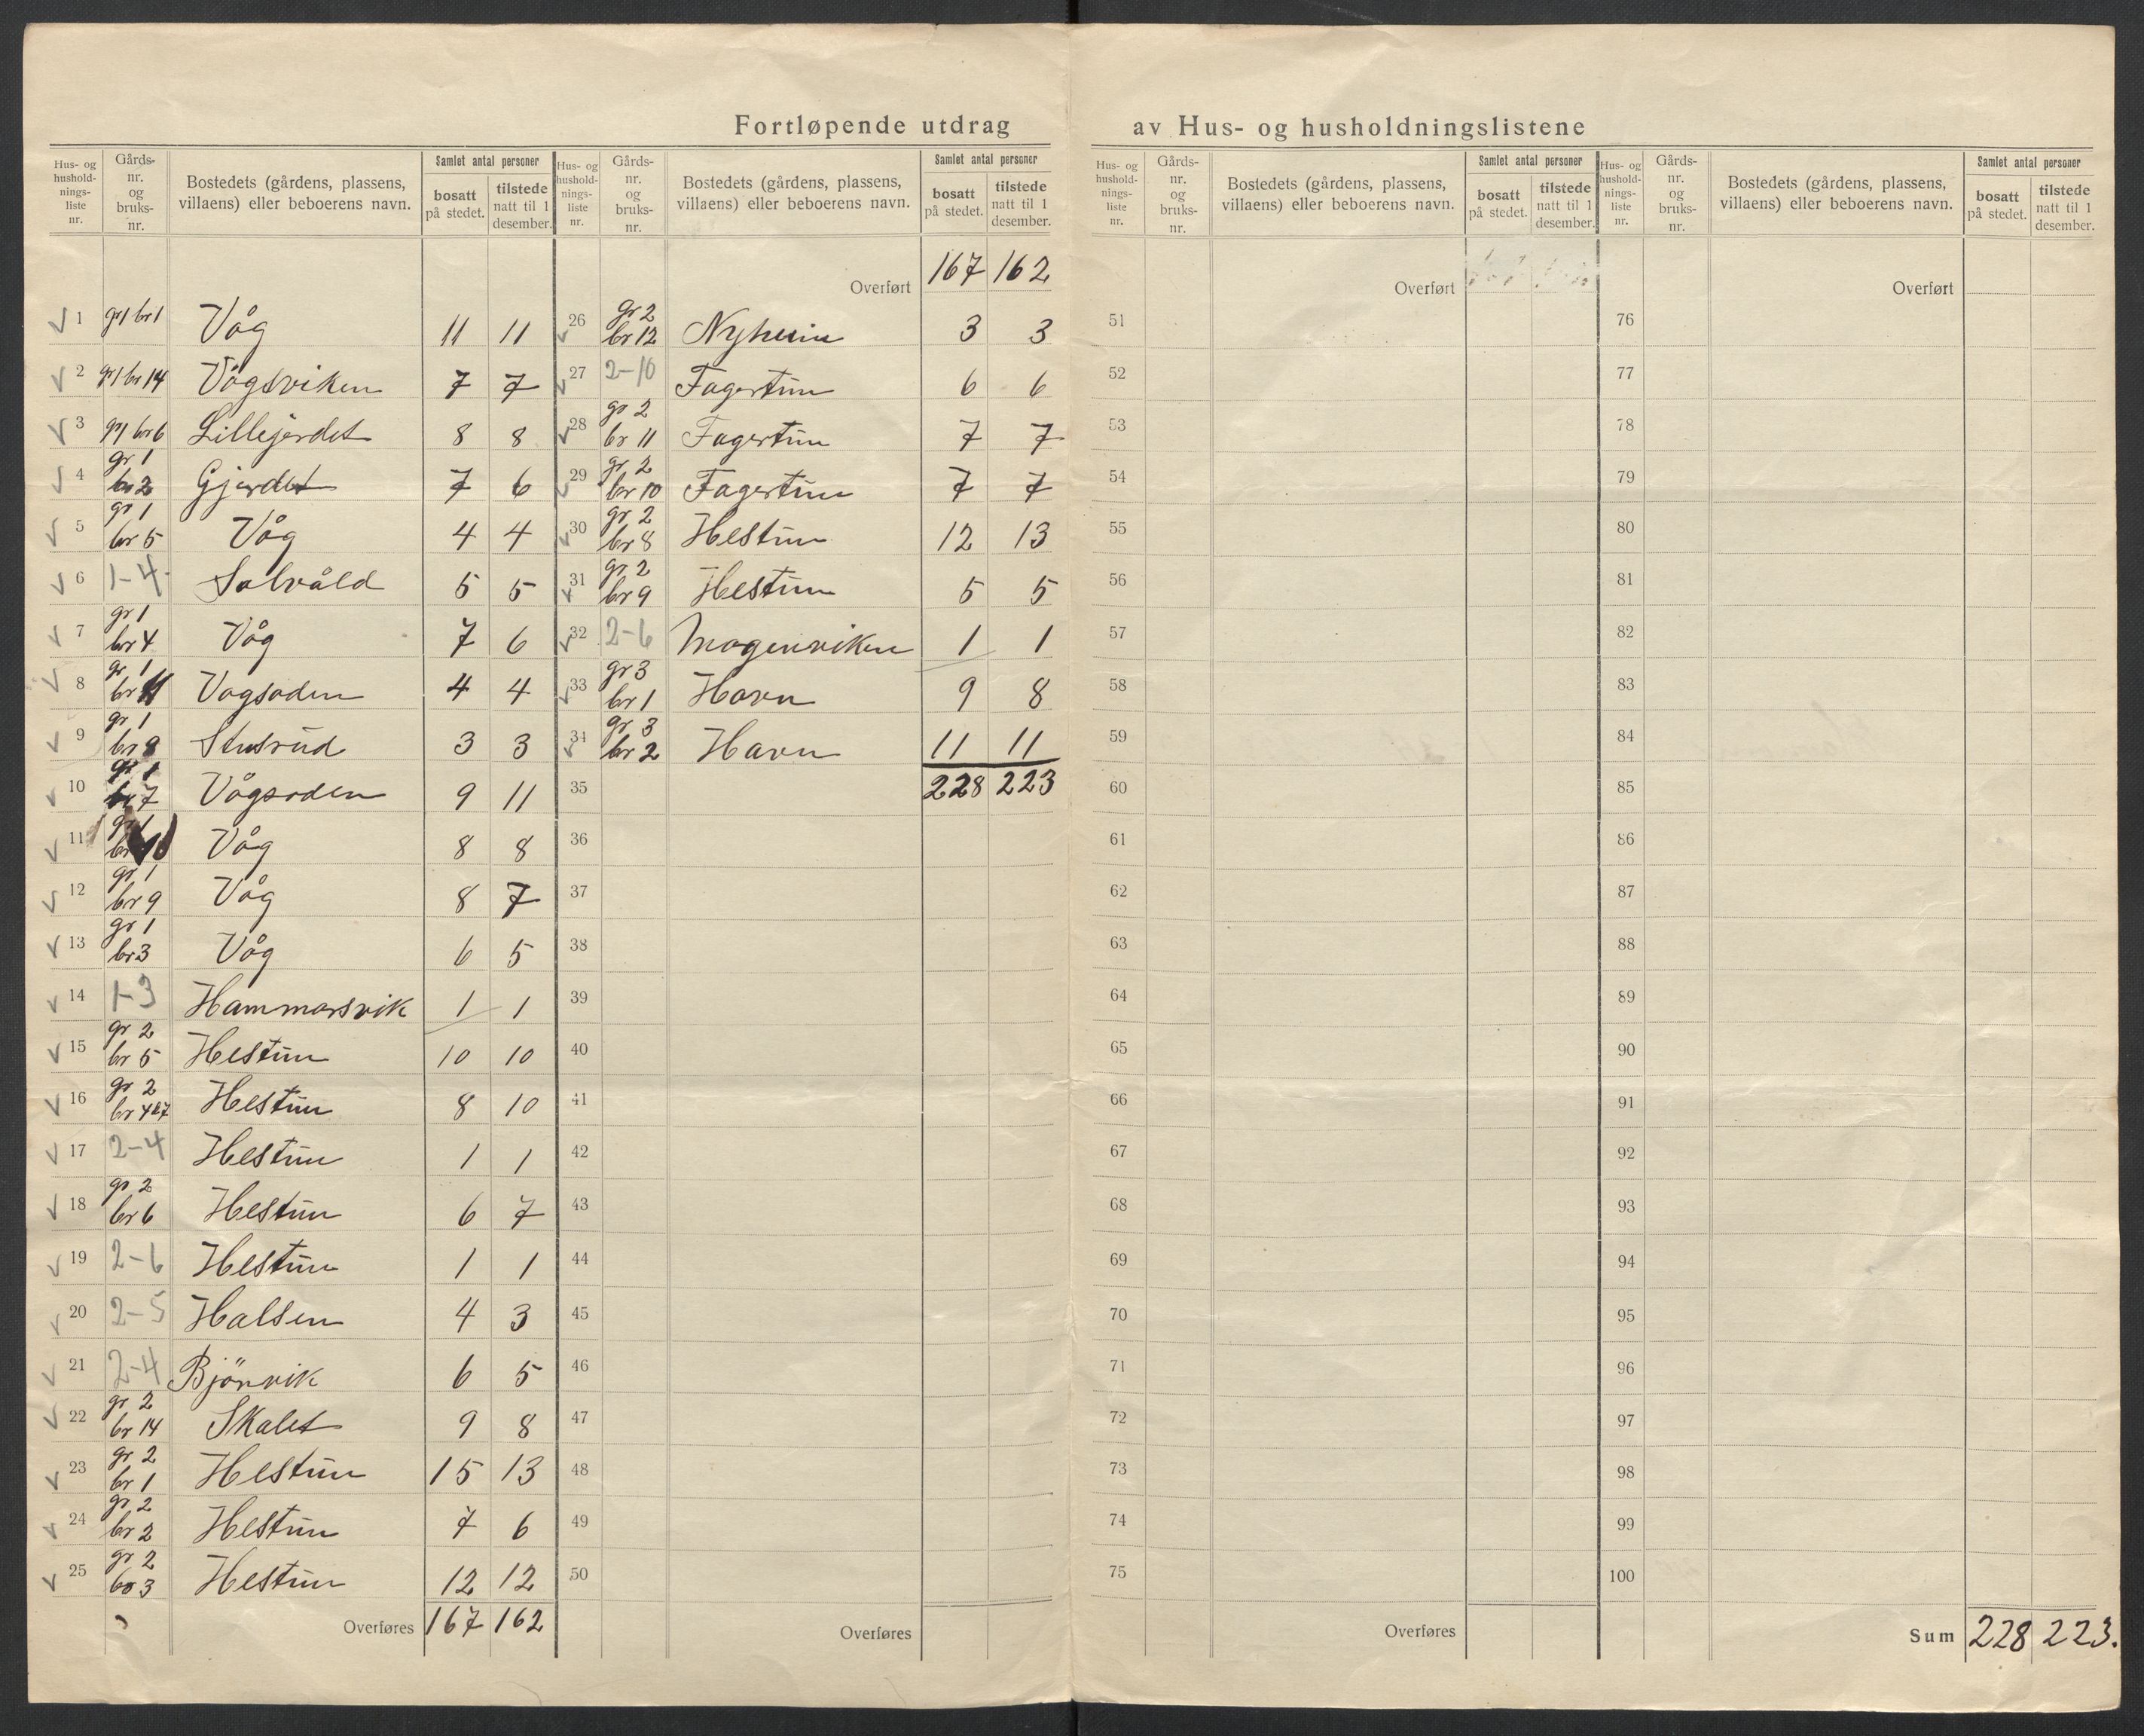 Fortløpende utdrag av Hus- og husholdningslistene
Hus- og husholdningsliste nr. | Gårds-nr. og bruks-nr. | Bostedets (gårdens, plassens, villaens) eller beboerens navn. | Samlet antal personer | bosatt på stedet. | tilstede natt til 1 desember.
1 gr 1 br 1 Våg 11 11
2 gr 1 br 14 Vågsviken 7 7
3 gr 1 br 6 Lillejerdet 8 8
4 gr 1 br 2 Gjerdet 7 6
5 gr 1 br 5 Våg 4 4
6 1-4 Solvåld 5 5
7 gr 1 br 4 Våg 7 6
8 gr 1 br 11 Vagsoden 4 4
9 gr 1 br 8 Stusrud 3 3
10 gr 1 br 7 Vågsoden 9 11
11 gr 1 br 10 Våg 8 8
12 gr 1 br 9 Våg 8 7
13 gr 1 br 3 Våg 6 5
14 1-3 Hammarsvik 1 1
15 gr 2 br 5 Hestun 10 10
16 gr 2 br 4&7 Hestun 8 10
17 2-4 Hestun 1 1
18 gr 2 br 6 Hestun 6 7
19 2-6 Hestun 1 1
20 2-5 Halsen 4 3
21 2-4 Bjönvik 6 5
22 gr 2 br 14 Skalet 9 8
23 gr 2 br 1 Hestun 15 13
24 gr 2 br 2 Hestun 7 6
25 gr 2 br 3 Hestun 12 12
Overføres 167 162
Hus- og husholdningsliste nr. | Gårds-nr. og bruks-nr. | Bostedets (gårdens, plassens, villaens) eller beboerens navn. | Samlet antal personer | bosatt på stedet. | tilstede natt til 1 desember.
Overført 167 162
26 gr 2 br 12 Nyheim 3 3
27 2-10 Fagertun 6 6
28 gr 2 br 11 Fagertun 7 7
29 gr 2 br 10 Fagertun 7 7
30 gr 2 br 8 Hestun 12 13
31 gr 2 br 9 Hestun 5 5
32 2-6 Mogenviken 1 1
33 gr 3 br 1 Havn 9 8
34 gr 3 br 2 Havn 11 11
35 228 223
36
37
38
39
40
41
42
43
44
45
46
47
48
49
50
Overføres
Hus- og husholdningsliste nr. | Gårds-nr. og bruks-nr. | Bostedets (gårdens, plassens, villaens) eller beboerens navn. | Samlet antal personer | bosatt på stedet. | tilstede natt til 1 desember.
Overført
51
52
53
54
55
56
57
58
59
60
61
62
63
64
65
66
67
68
69
70
71
72
73
74
75
Overføres
Hus- og husholdningsliste nr. | Gårds-nr. og bruks-nr. | Bostedets (gårdens, plassens, villaens) eller beboerens navn. | Samlet antal personer | bosatt på stedet. | tilstede natt til 1 desember.
Overført
76
77
78
79
80
81
82
83
84
85
86
87
88
89
90
91
92
93
94
95
96
97
98
99
100
Sum 228 223.